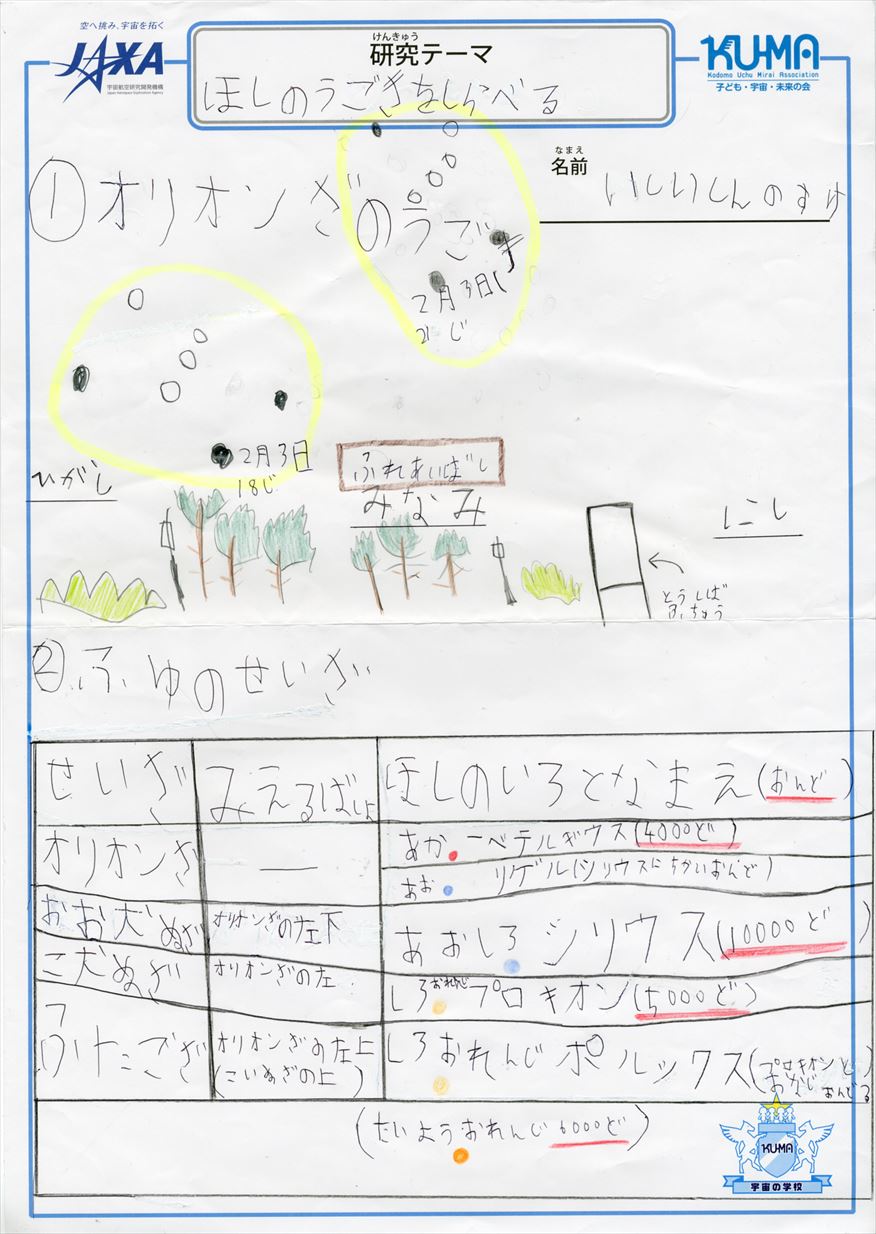 空へ挑み、宇宙を拓く
JAXA
宇宙航空研究開発機構
Japan Aerospace Exploration Agency
けんきゅう
研究テーマ
ほしのうごきをしらべる
KU-MA
Kodomo Uchu Mirai Association
子ども・宇宙・未来の会
なまえ
名前
いしいしんのすけ
① オリオンざのうごき
2月3日
21じ
2月3日
18じ
ひがし
ふれあいばし
みなみ
にし
とうしば
ふちゅう
② ふゆのせいざ
せいざ みえるばしょ ほしのいろとなまえ(おんど)
オリオンざ ― あか ーベテルギウス(4000ど)
あお リゲル(シリウスにちかいおんど)
おお犬ぬざ オリオンざの左下 あおしろ シリウス(10000ど)
こ犬ぬざ オリオンざの左 しろおれんじ プロキオン(5000ど)
ふたござ オリオンざの左上 しろおれんじ ポルックス(プロキオンと
(こいぬざの上) おなじ おんど)
(たいようおれんじ 6000ど)
KU-MA
宇宙の学校